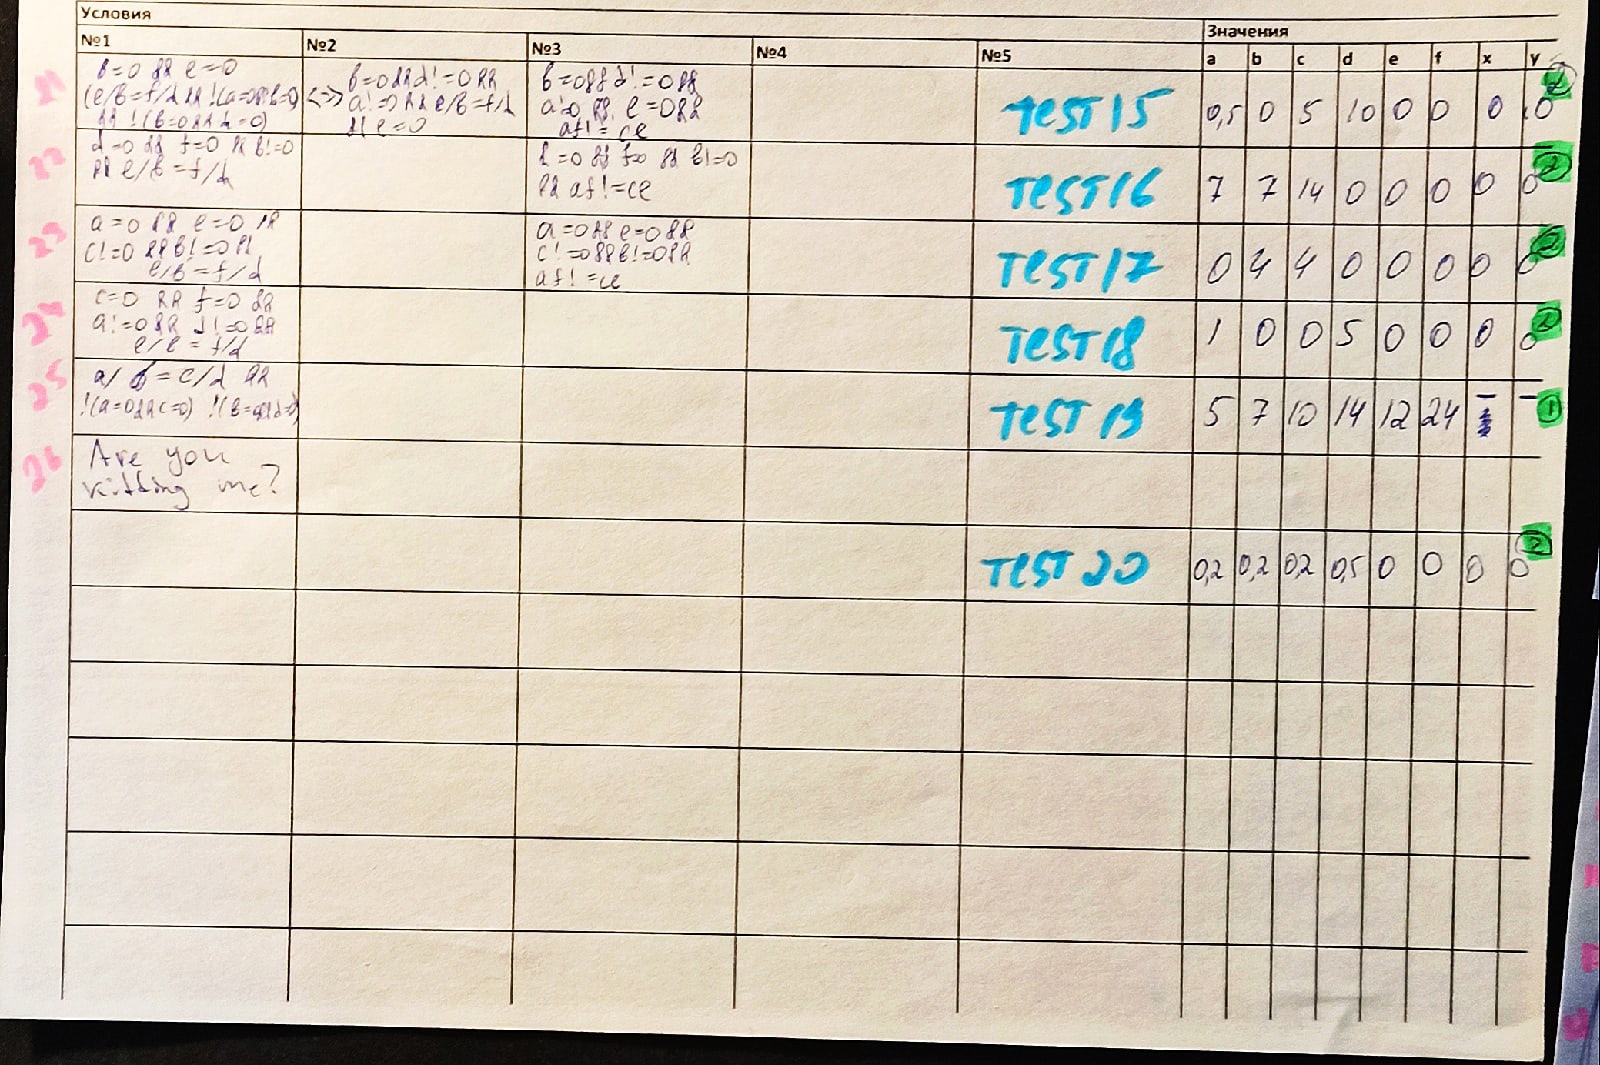 Условия
Значения
№1 №2 №3 №4 №5 a b c d e f x y
21
b=0 && e=0
(e/b=f/d && !(a=0&&b=0)
&& !(b=0&&d=0)
<=> b=0&&d!=0&&
a!=0&& e/b=f/d
&& e=0
b=0&&d!=0&&
a!=0 && e=0&&
af!=ce
TEST 15 0,5 0 5 10 0 0 0 0 2
22
d=0 && f=0 && b!=0
&& e/b=f/d
d=0 && f=0 && b!=0
&& af!=ce
TEST 16 7 7 14 0 0 0 0 0 2
23
a=0 && e=0 &&
c!=0&&b!=0&&
e/b=f/d
a=0&&e=0&&
c!=0&&b!=0&&
af!=ce
TEST 17 0 4 4 0 0 0 0 0 2
24
c=0 && f=0 &&
a!=0&& d!=0&&
e/b=f/d
TEST 18 1 0 0 5 0 0 0 0 2
25
a/b=c/d &&
!(a=0&&c=0) !(b=0&&d=0)
TEST 19 5 7 10 14 12 24 – – 1
26
Are you
kidding me?
TEST 20 0,2 0,2 0,2 0,5 0 0 0 0 2